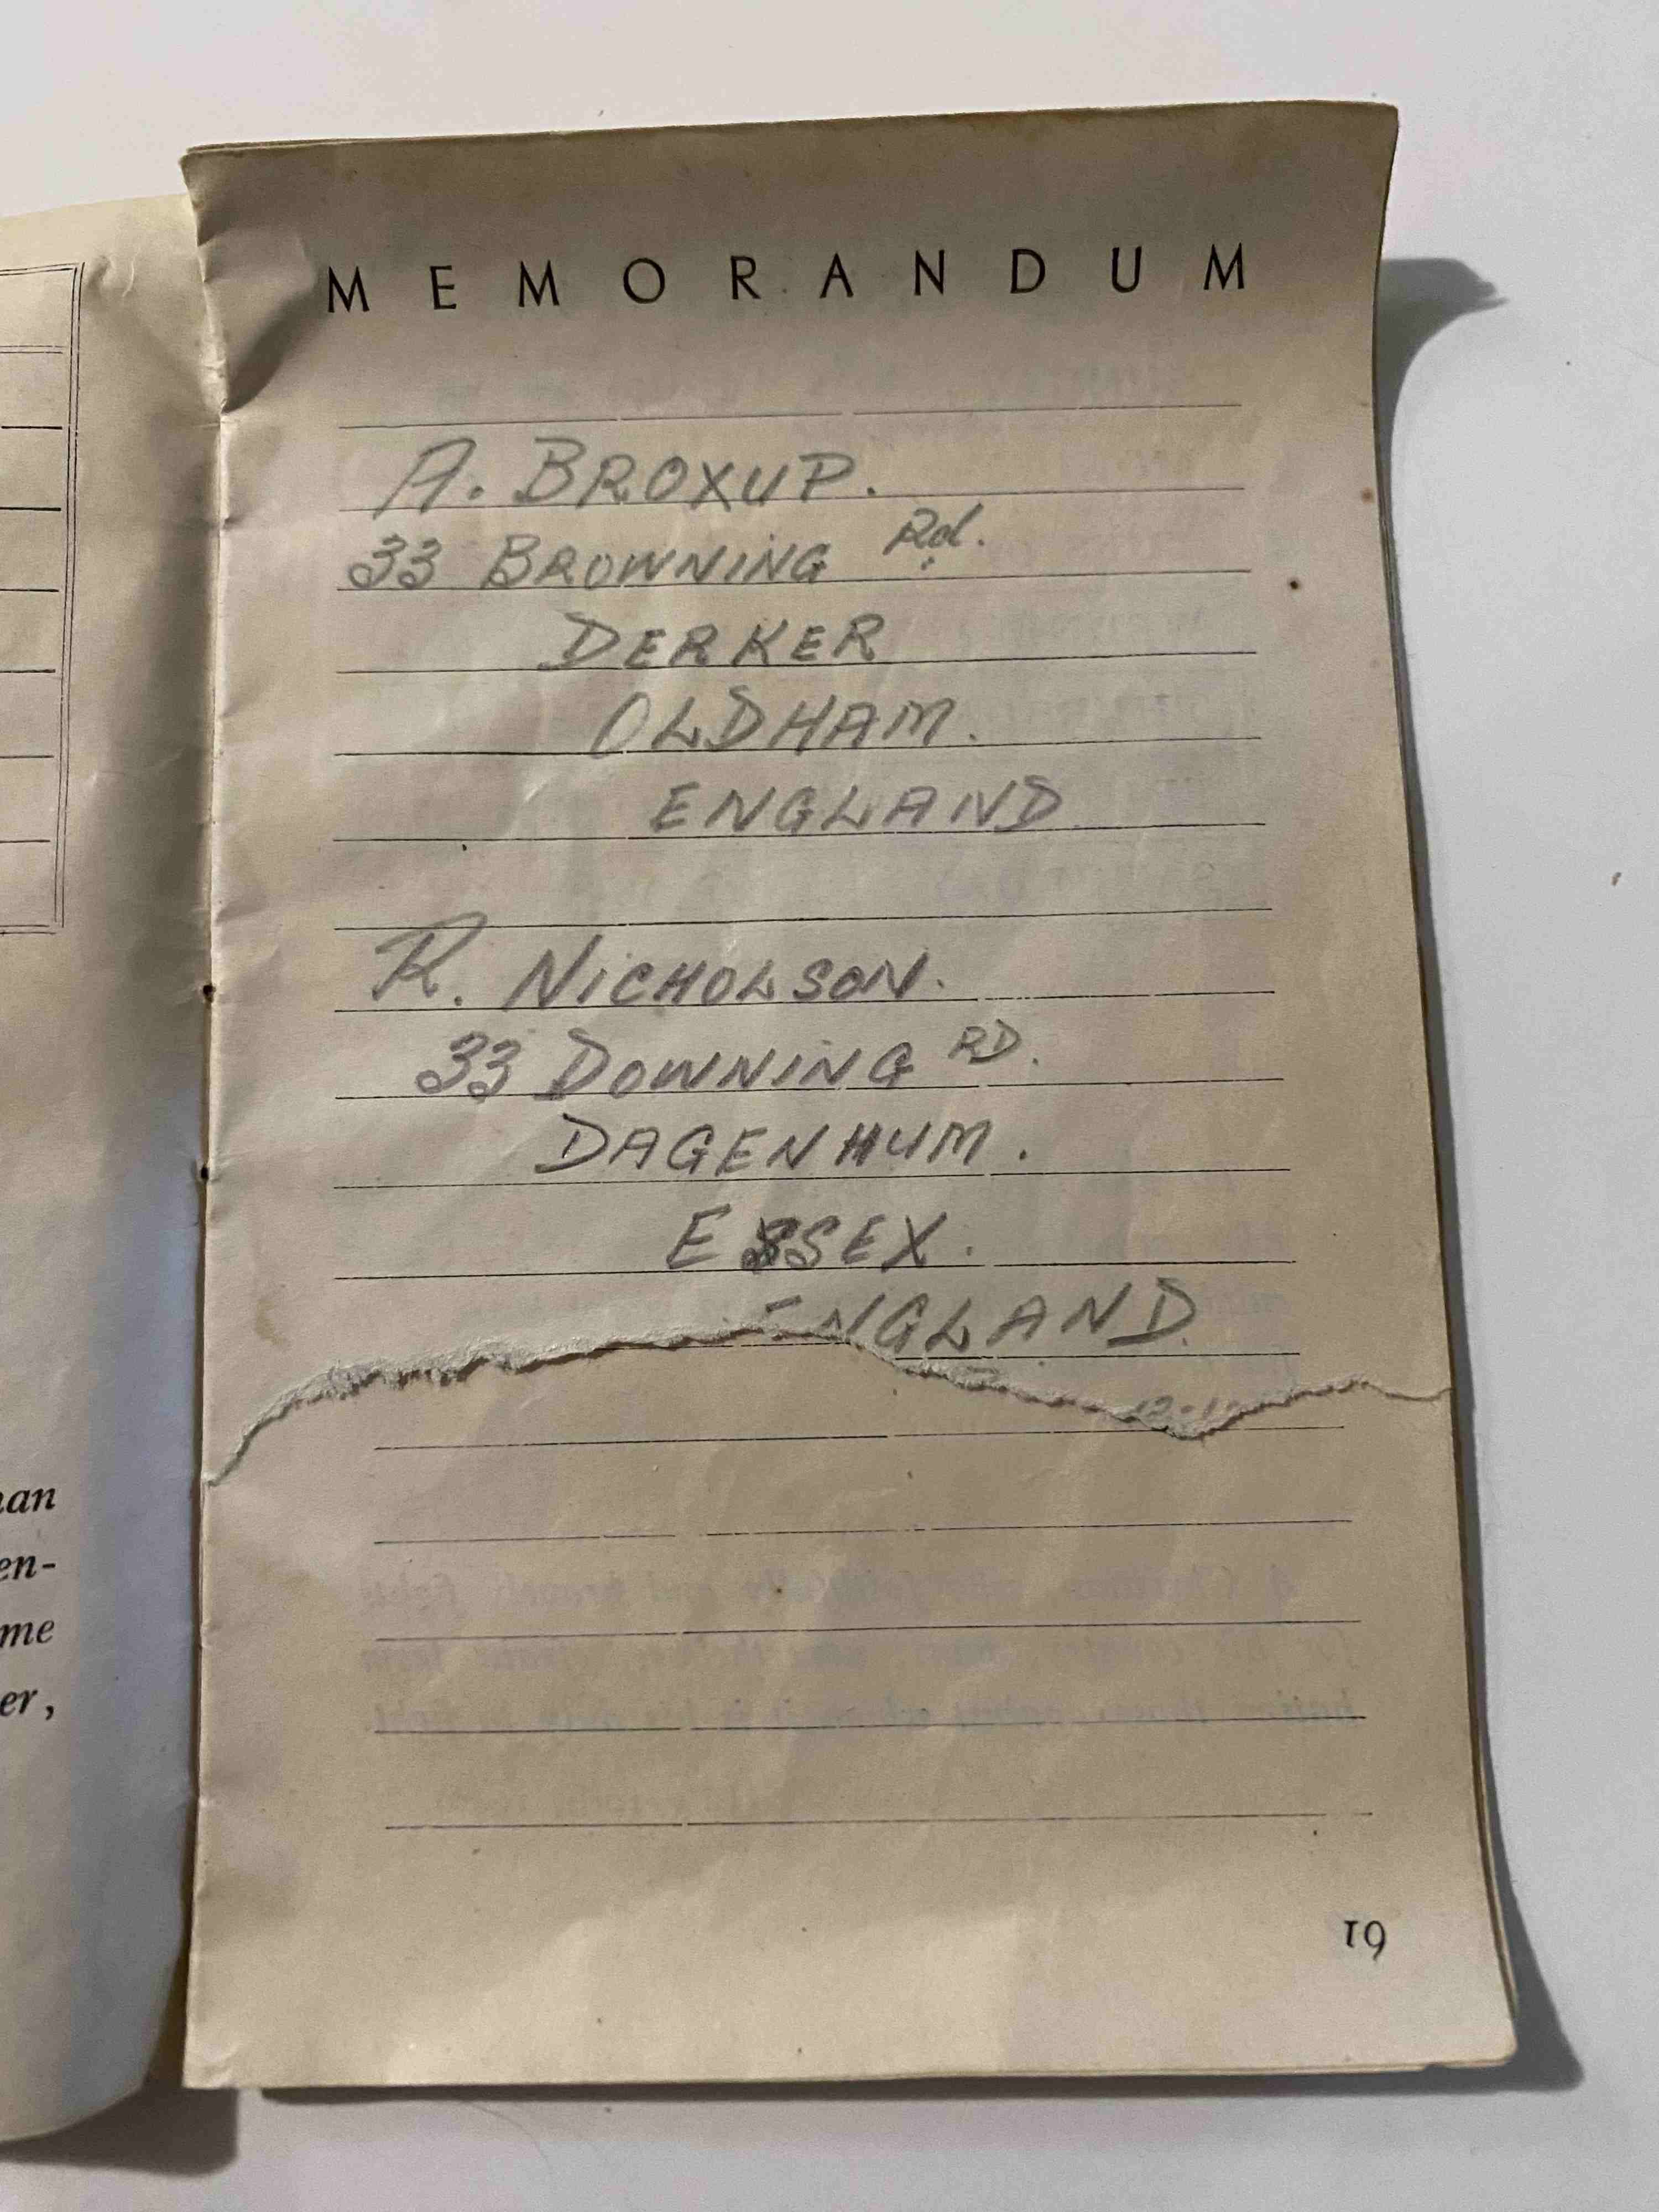 MEMORANDUM
A. BROXUP.
33 BROWNING Rd.
DERKER
OLDHAM.
ENGLAND
R. NICHOLSON.
33 DOWNING RD.
DAGENHUM.
ESSEX.
ENGLAND.
19
an
en-
me
er,